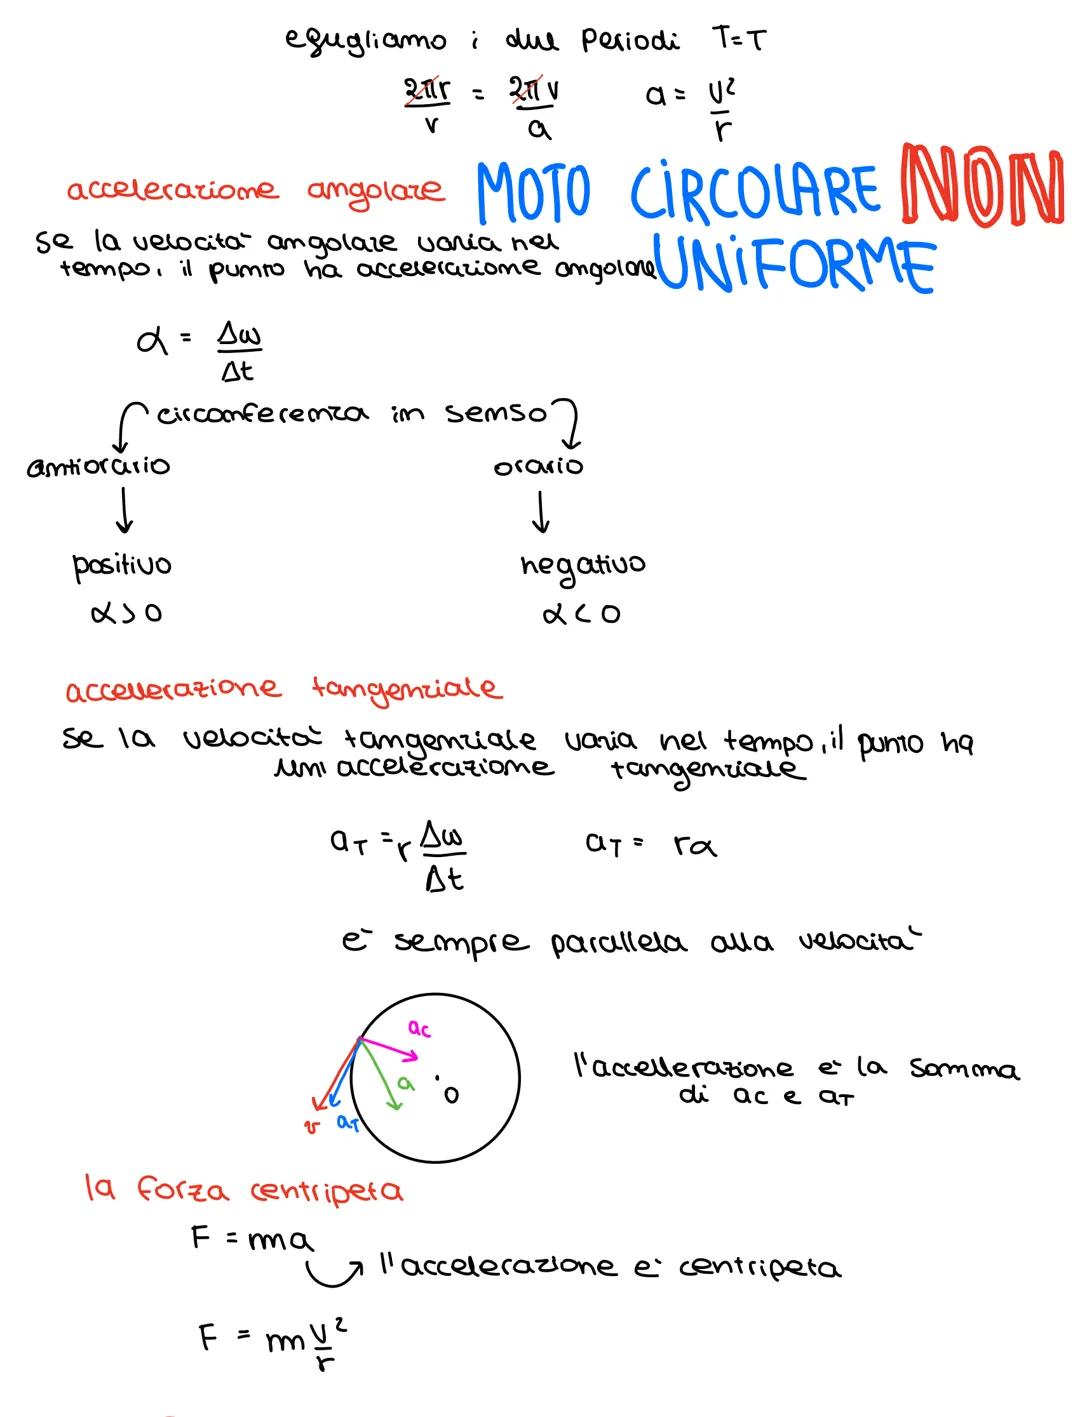 eguagliamo i due periodi T=T
2πr/v = 2πv/a a = v²/r
accelerazione angolare MOTO CIRCOLARE NON
UNIFORME
se la velocità angolare varia nel
tempo, il punto ha accelerazione angolare
α = Δω/Δt
circonferenza in senso
antiorario orario
positivo negativo
α>0 α<0
accelerazione tangenziale
se la velocità tangenziale varia nel tempo, il punto ha
un'accelerazione tangenziale
aT = r Δω/Δt aT = rα
è sempre parallela alla velocità
ac
a
O
v aT
l'accellerazione è la somma
di ac e aT
la forza centripeta
F = ma
l'accelerazione è centripeta
F = m v²/r